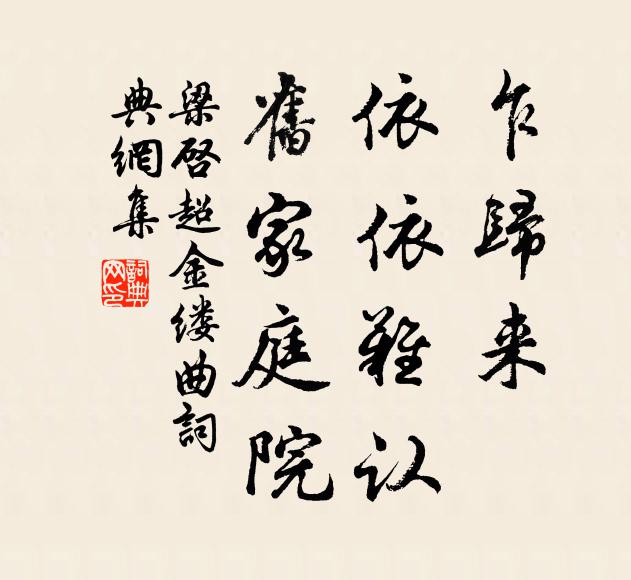 乍歸来
依依難认
舊家庭院
梁启超金缕曲詞
典網集
詞典
网印